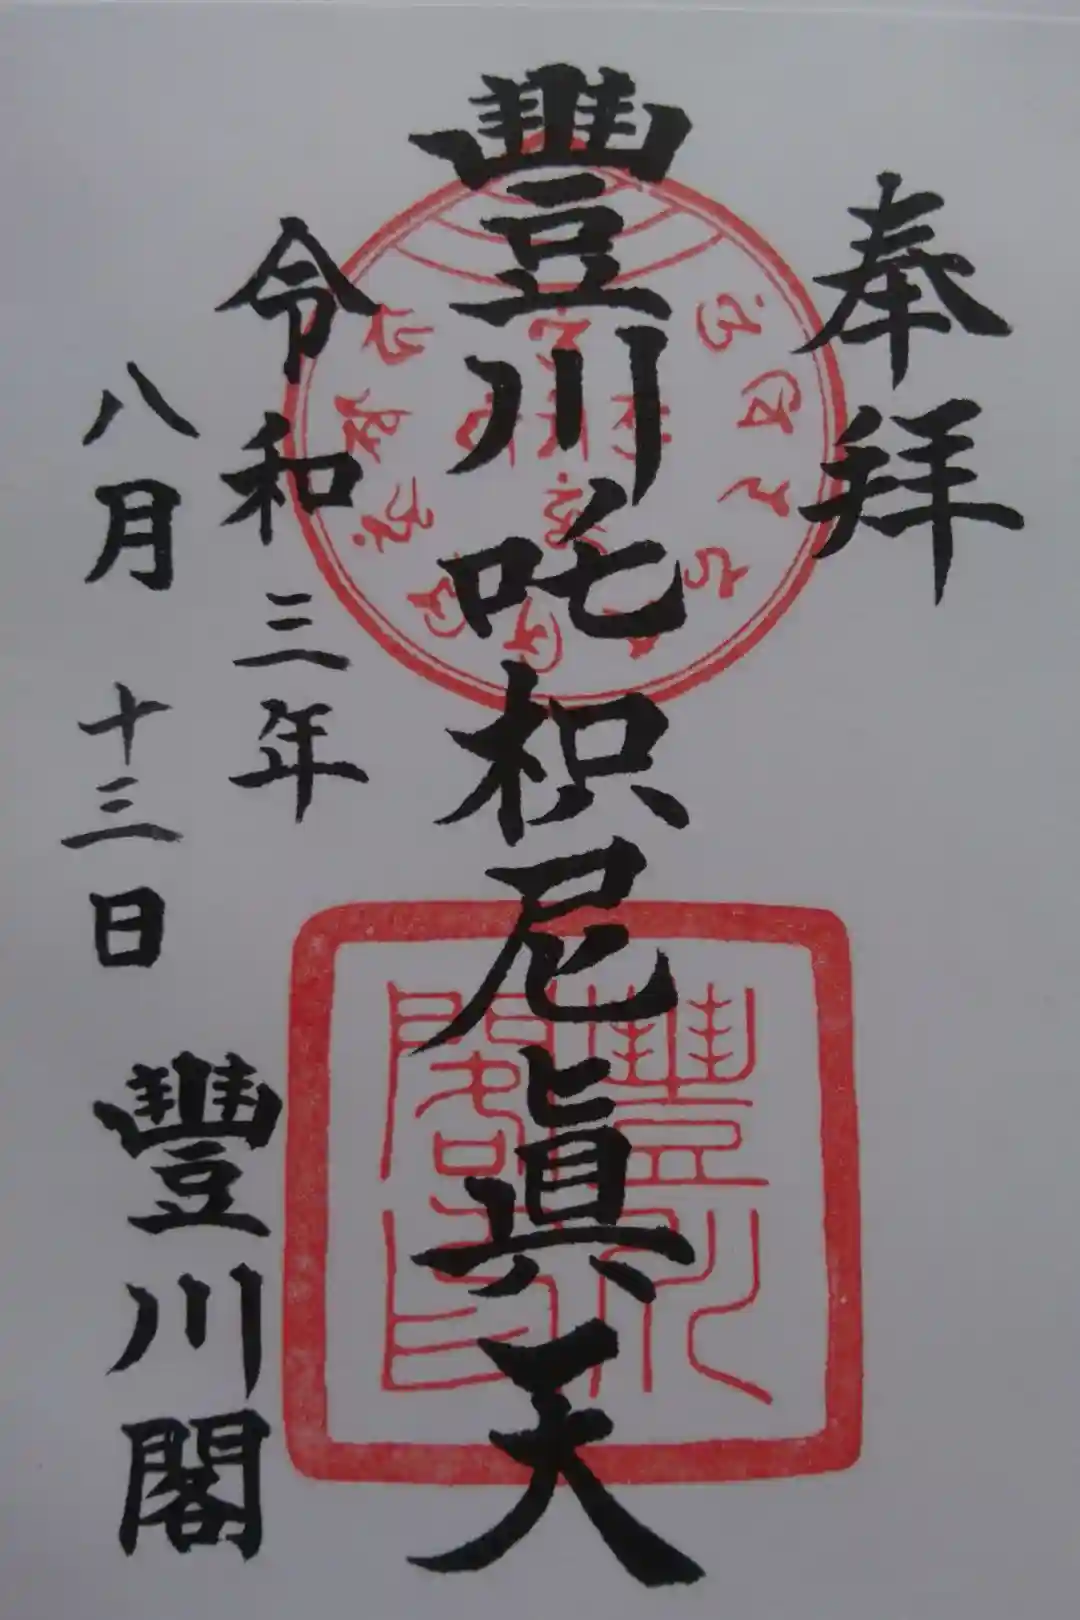 奉拜
豐川吒枳尼眞天
令和三年
八月十三日
豐川閣
豐川閣印